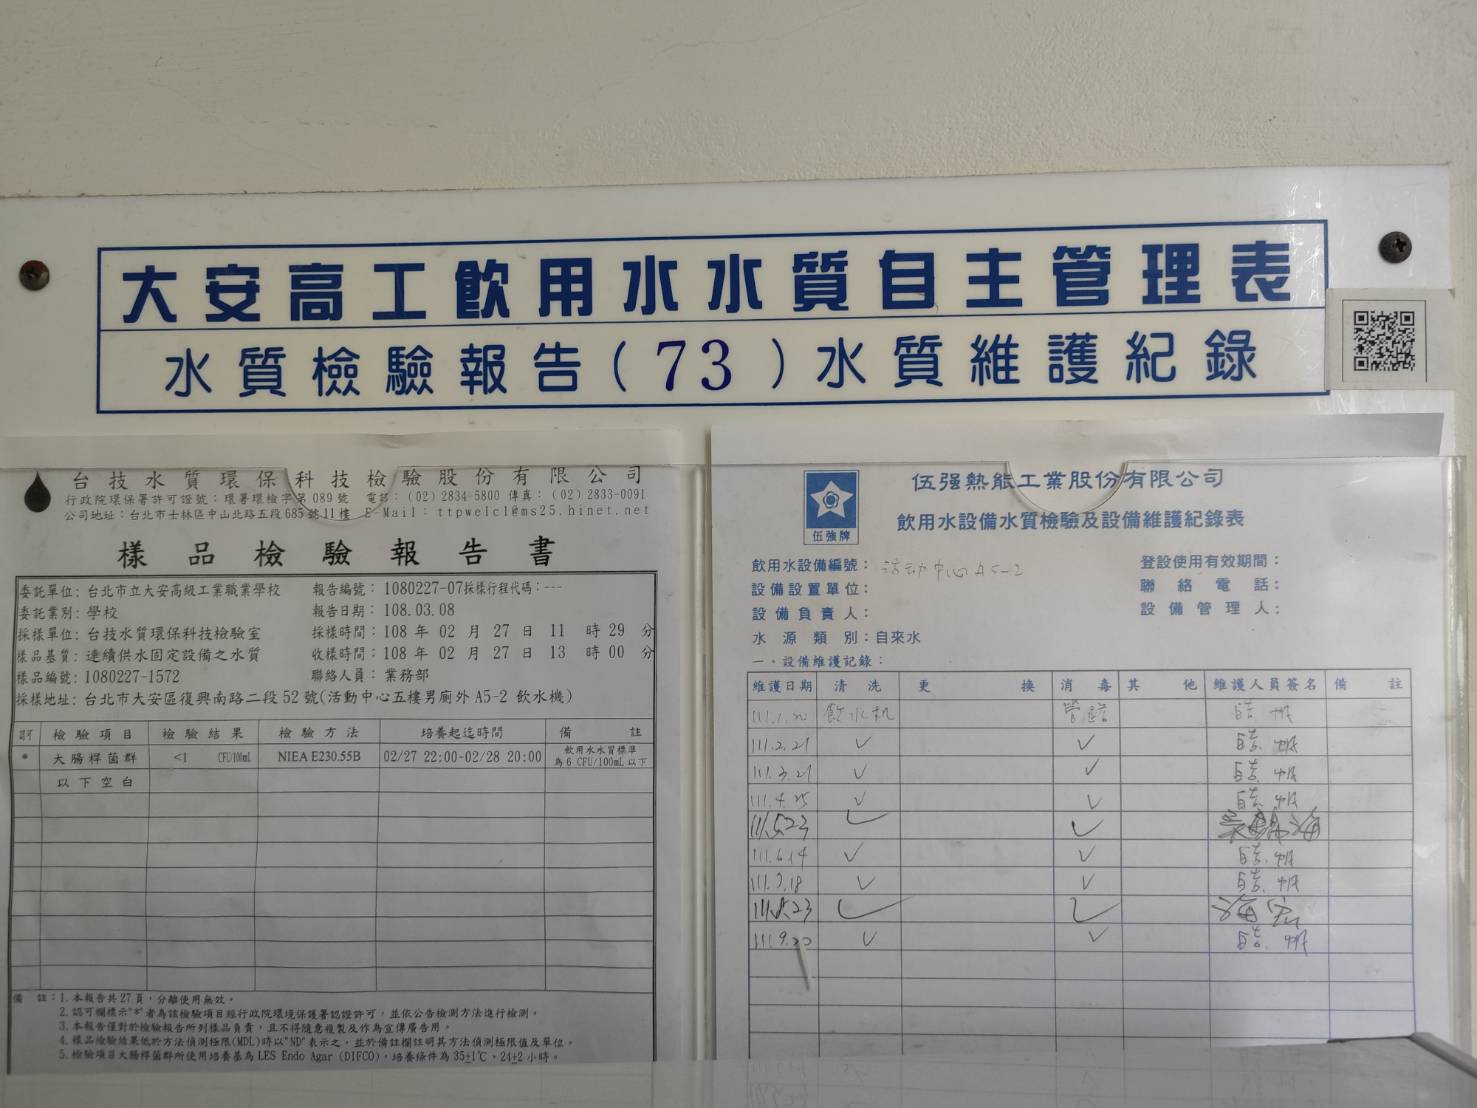 大安高工飲用水水質自主管理表
水質檢驗報告(73)水質維護紀錄
台技水質環保科技檢驗股份有限公司
行政院環保署許可證號：環署環檢字第089號 電話：(02)2834-5800 傳真：(02)2833-0091
公司地址：台北市士林區中山北路五段685號11樓 E-Mail：ttpwelcl@ms25.hinet.net
樣品檢驗報告書
委託單位：台北市立大安高級工業職業學校 報告編號：1080227-07採樣行程代碼：---
委託業別：學校 報告日期：108.03.08
採樣單位：台技水質環保科技檢驗室 採樣時間：108 年 02 月 27 日 11 時 29 分
樣品基質：連續供水固定設備之水質 收樣時間：108 年 02 月 27 日 13 時 00 分
樣品編號：1080227-1572 聯絡人員：業務部
採樣地址：台北市大安區復興南路二段52號(活動中心五樓男廁外A5-2 飲水機)
認可 檢驗項目 檢驗結果 檢驗方法 培養起迄時間 備註
* 大腸桿菌群 <1 CFU/100mL NIEA E230.55B 02/27 22:00-02/28 20:00 飲用水水質標準
為6 CFU/100mL以下
以下空白
備註：1.本報告共27頁，分離使用無效。
2.認可欄標示"*"者為該檢驗項目經行政院環境保護署認證許可，並依公告檢測方法進行檢測。
3.本報告僅對於檢驗報告所列樣品負責，且不得隨意複製及作為宣傳廣告用。
4.樣品檢驗結果低於方法偵測極限(MDL)時以"ND"表示之，並於備註欄註明其方法偵測極限值及單位。
5.檢驗項目大腸桿菌群所使用培養基為LES Endo Agar (DIFCO)，培養條件為35±1℃、24±2小時。
伍強牌
伍强熱能工業股份有限公司
飲用水設備水質檢驗及設備維護紀錄表
飲用水設備編號：活动中心A5-2 登設使用有效期間：
設備設置單位： 聯絡電話：
設備負責人： 設備管理人：
水源類別：自來水
一、設備維護記錄：
維護日期 清洗 更換 消毒 其他 維護人員簽名 備註
111.1.20 飲水机
111.2.21 ✓ ✓
111.3.21 ✓ ✓
111.4.25 ✓ ✓
111.5.23 ✓ ✓
111.6.14 ✓ ✓
111.7.18 ✓ ✓
111.8.23 ✓ ✓
111.9.20 ✓ ✓